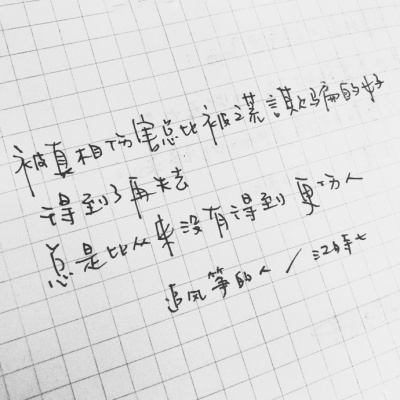 被真相伤害总比被谎言欺骗的好
得到了再失去
总是比从来没有得到更伤人
追风筝的人 /